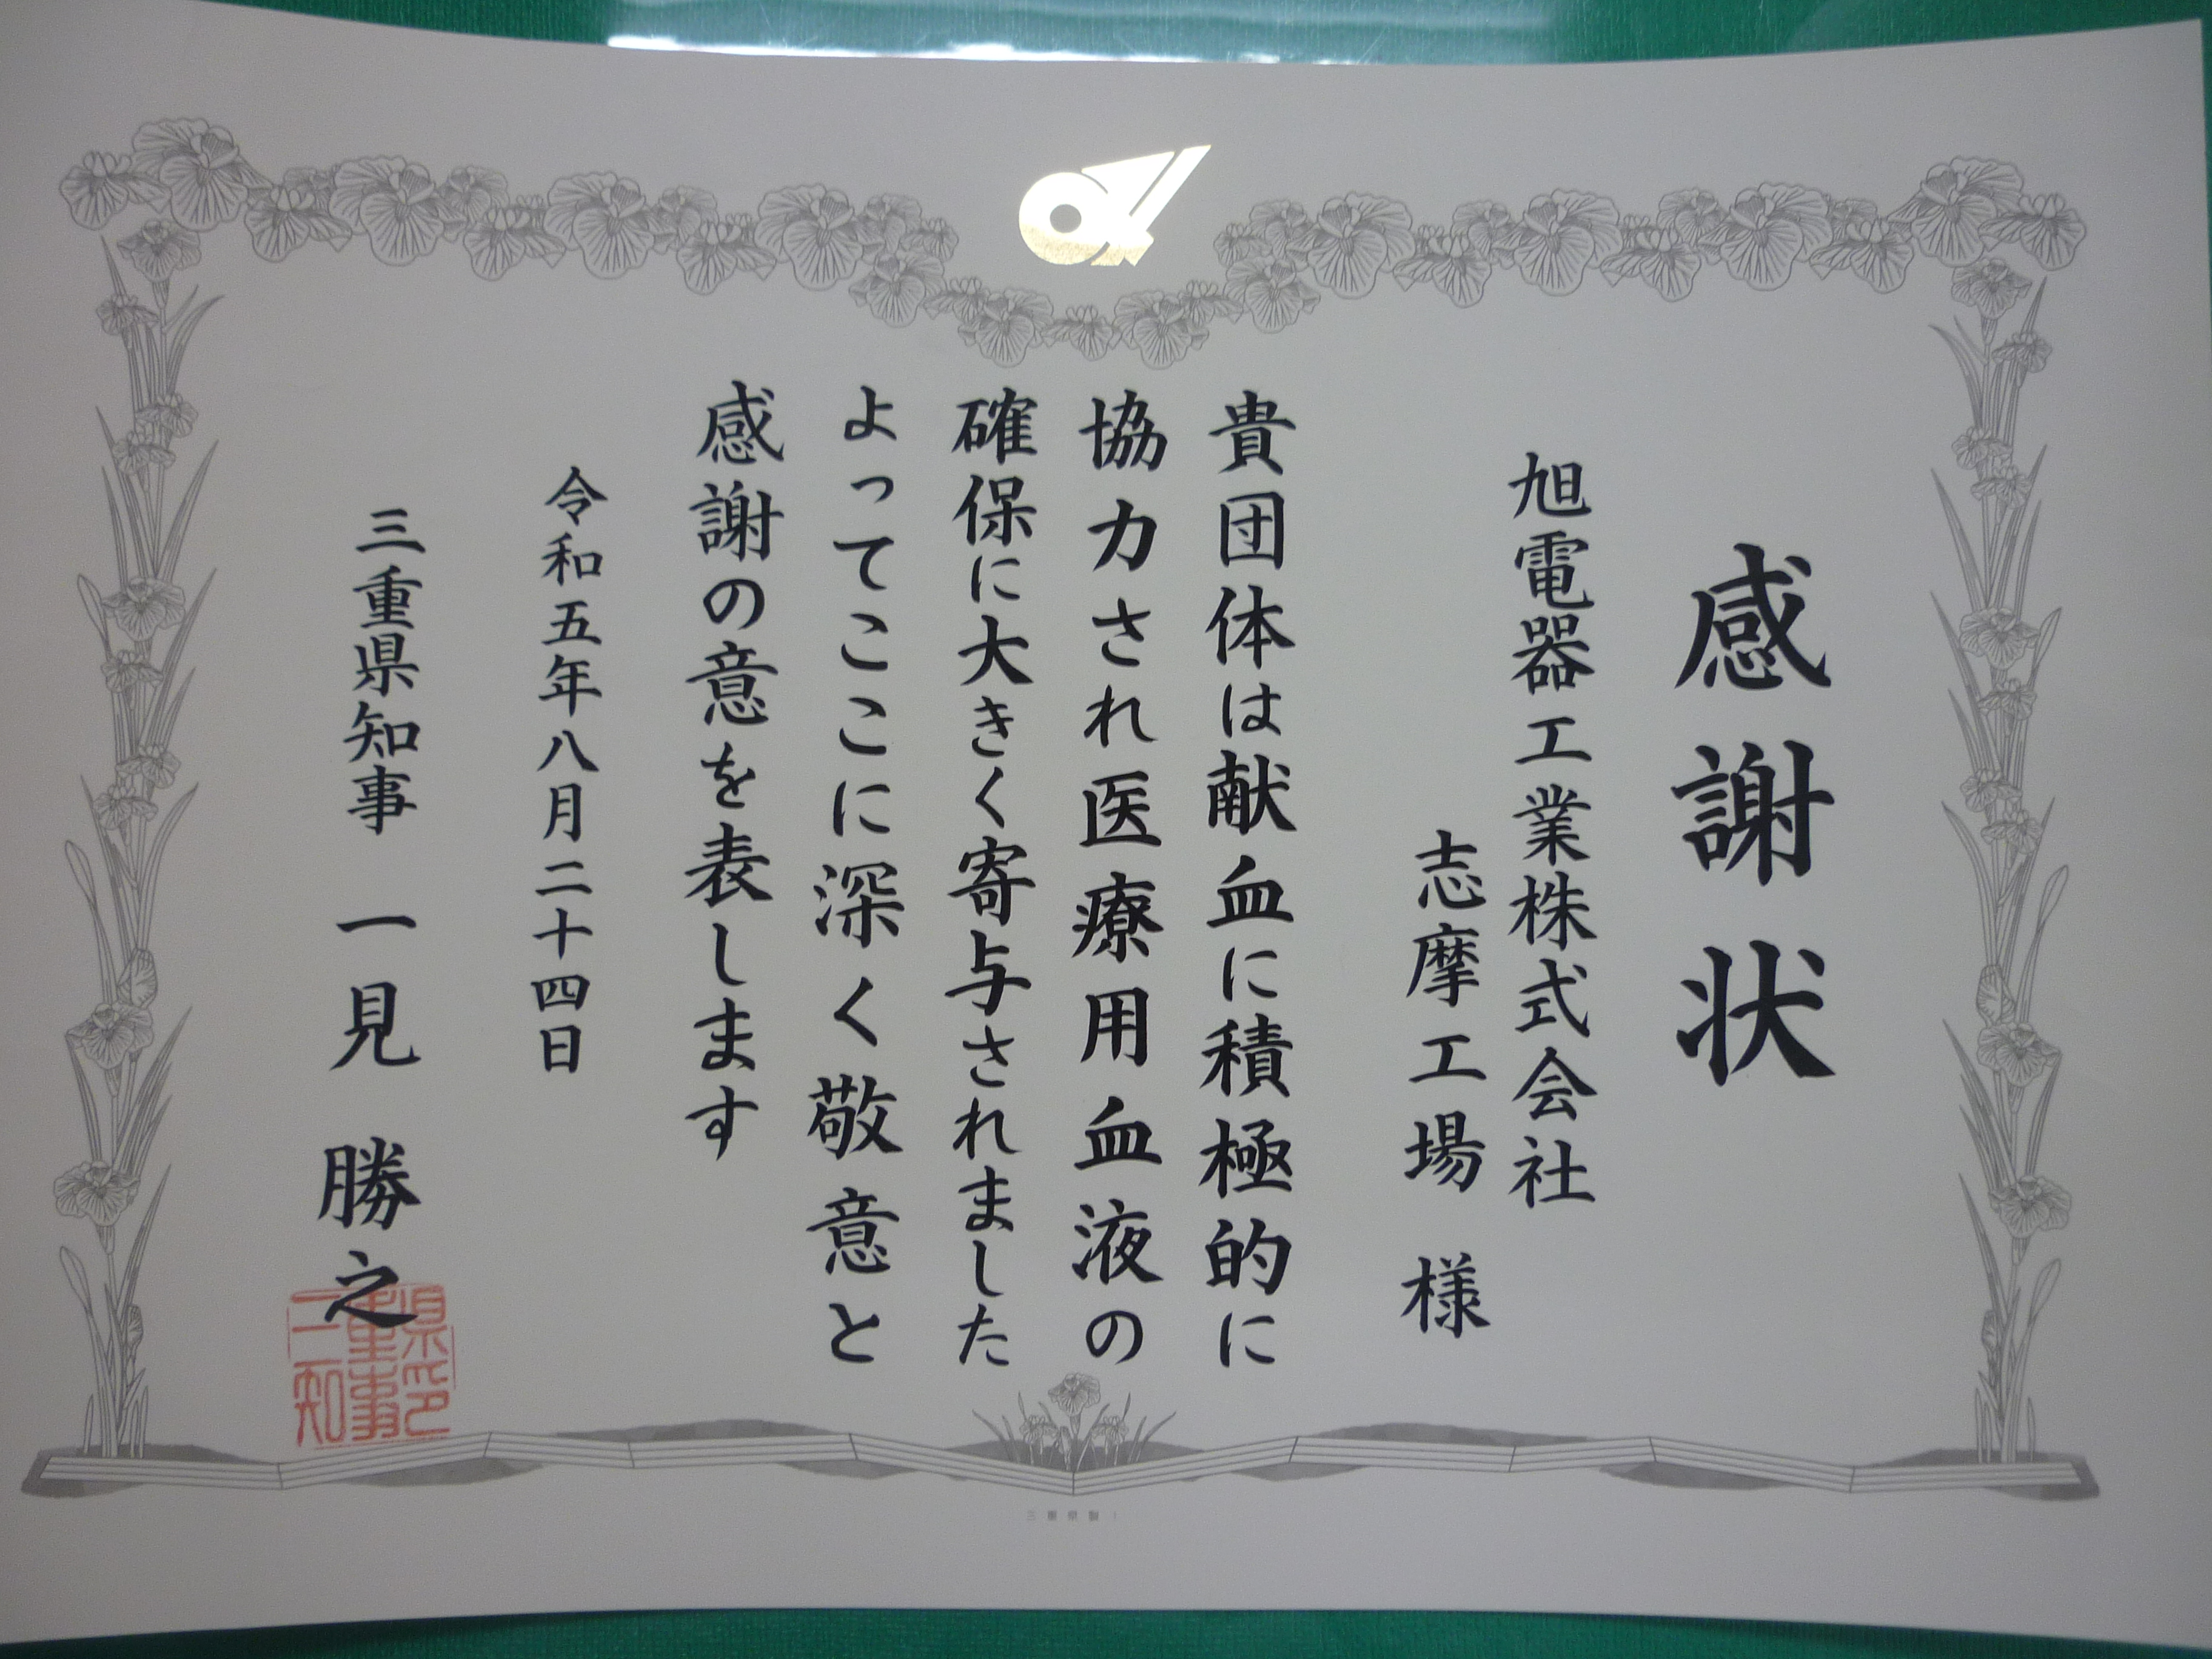 感謝状
旭電器工業株式会社
志摩工場 様
貴団体は献血に積極的に
協力され医療用血液の
確保に大きく寄与されました
よってここに深く敬意と
感謝の意を表します
令和五年八月二十四日
三重県知事 一見 勝之
三重県知事印